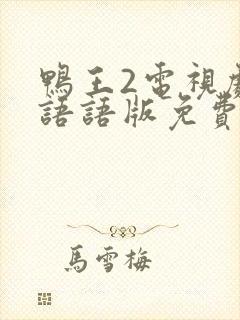 鴨王2電視劇
語語版免費
馬雪梅